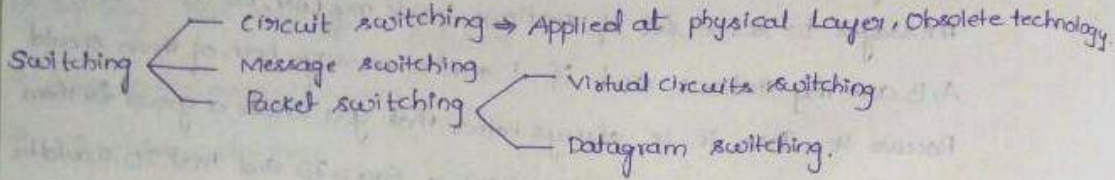 Circuit switching → Applied at physical Layer, Obsolete technology
Switching
Message switching
Packet switching
Virtual circuits switching
Datagram switching.